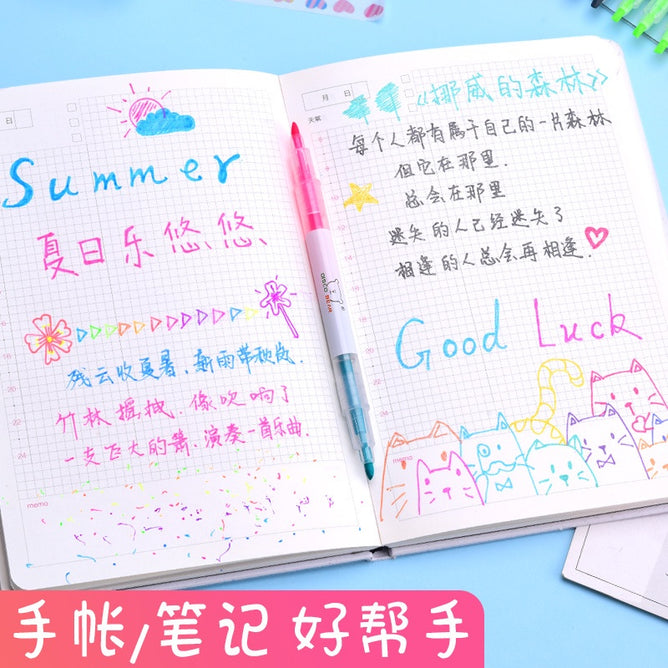 日
Summer
夏日乐悠悠
残云收夏暑、新雨带秋岚.
竹林摇拽.像吹响了
一支飞大的箫.演奏一首乐曲.
memo
月 日
天气
《挪威的森林》
每个人都有属于自己的一片森林
但它在那里.
总会在那里
迷失的人已经迷失了
相逢的人总会再相逢.
Good Luck
memo
DISCO BEAR
手帐/笔记 好帮手